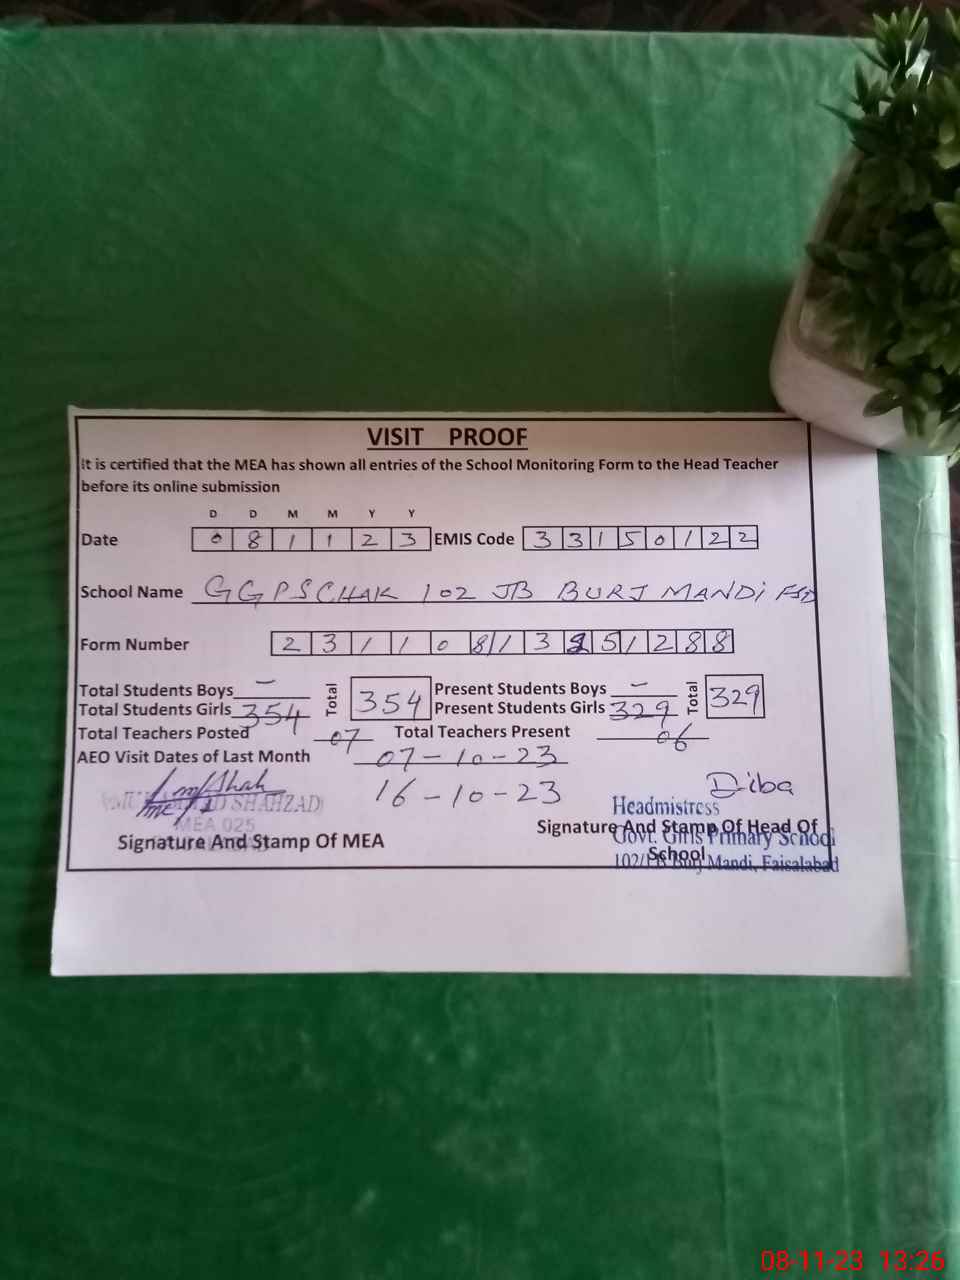 VISIT PROOF
It is certified that the MEA has shown all entries of the School Monitoring Form to the Head Teacher
before its online submission
D D M M Y Y
Date 0 8 1 1 2 3 EMIS Code 3 3 1 5 0 1 2 2
School Name GGPS CHAK 102 JB BURJ MANDI FSD
Form Number 2 3 1 1 0 8 1 3 3 5 1 2 8 8
Total Students Boys – Total 354 Present Students Boys – Total 329
Total Students Girls 354 Present Students Girls 329
Total Teachers Posted 07 Total Teachers Present 06
AEO Visit Dates of Last Month 07-10-23
16-10-23
Diba
SHAHZAD
MEA 025
Headmistress
Signature And Stamp Of MEA
Signature And Stamp Of Head Of
School
Govt. Girls Primary School
Burj Mandi, Faisalabad
08-11-23 13:26